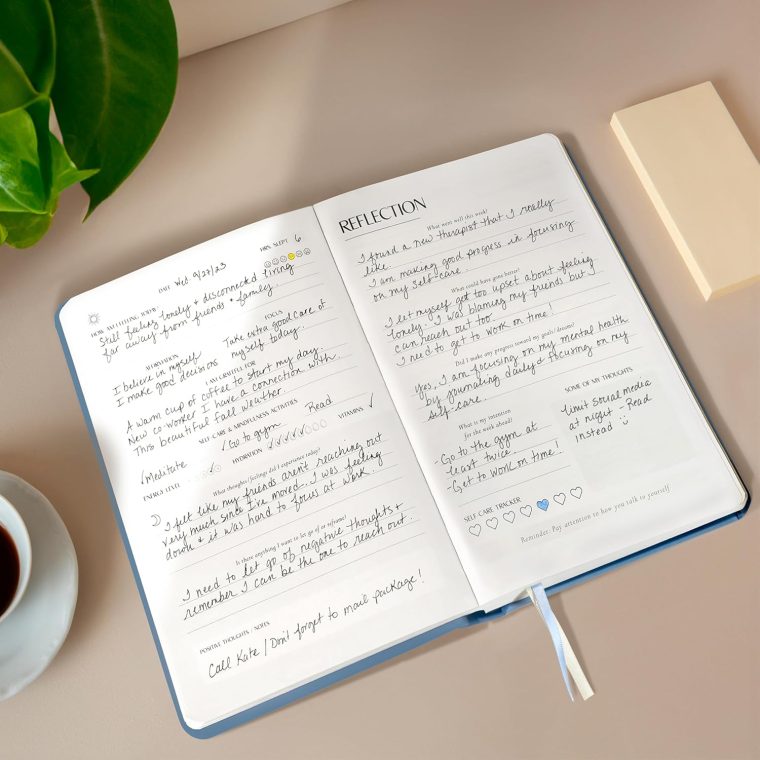 HRS. SLEPT 6
DATE Wed 9/27/23
HOW AM I FEELING TODAY?
Still feeling lonely & disconnected living
far away from friends & family.
AFFIRMATION
I believe in myself
I make good decisions
FOCUS
Take extra good care of
myself today.
I AM GRATEFUL FOR
A warm cup of coffee to start my day.
New co-worker I have a connection with.
This beautiful fall weather.
SELF-CARE & MINDFULNESS ACTIVITIES
✓Meditate
✓Go to gym
Read
VITAMINS ✓
ENERGY LEVEL
HYDRATION
What thoughts/feelings did I experience today?
I felt like my friends aren't reaching out
very much since I've moved. I was feeling
down & it was hard to focus at work.
Is there anything I want to let go of or reframe?
I need to let go of negative thoughts &
remember I can be the one to reach out.
POSITIVE THOUGHTS / NOTES
Call Kate / Don't forget to mail package!
REFLECTION
What went well this week?
I found a new therapist that I really
like.
I am making good progress in focusing
on my self-care.
What could have gone better?
I let myself get too upset about feeling
lonely. I was blaming my friends but I
can reach out too.
I need to get to work on time!
Did I make any progress toward my goals / dreams?
Yes, I am focusing on my mental health
by journaling daily & focusing on my
self-care.
What is my intention
for the week ahead?
-Go to the gym at
least twice
-Get to work on time!
SOME OF MY THOUGHTS
Limit social media
at night - Read
instead :)
SELF CARE TRACKER
Reminder: Pay attention to how you talk to yourself